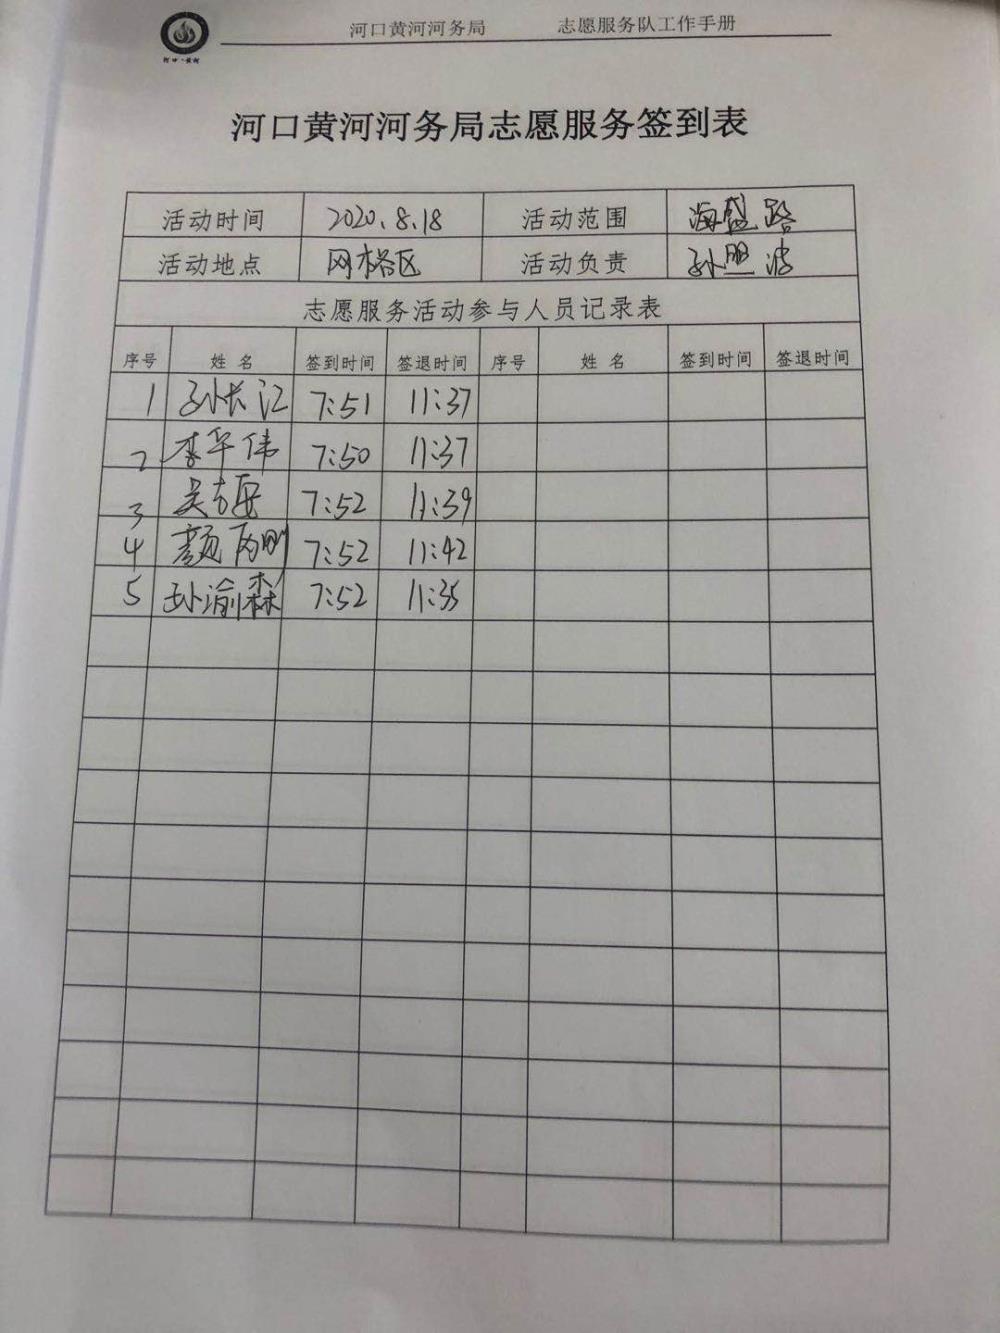 河口黄河河务局 志愿服务队工作手册
河口·黄河
河口黄河河务局志愿服务签到表
活动时间 2020.8.18 活动范围 海盛路
活动地点 网格区 活动负责 孙照波
志愿服务活动参与人员记录表
序号 姓名 签到时间 签退时间 序号 姓名 签到时间 签退时间
1 孙长江 7:51 11:37
2 李平伟 7:50 11:37
3 吴 7:52 11:39
4 颜丙刚 7:52 11:42
5 孙渝森 7:52 11:35